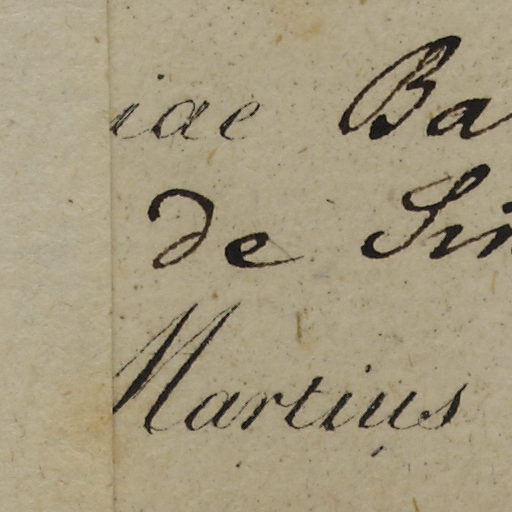 iae Ba
de Sin
Martius